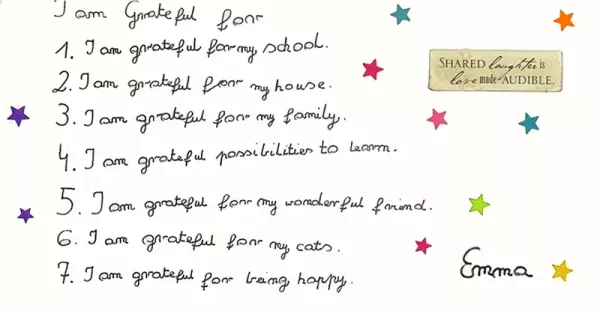 I am Grateful for
1. I am grateful for my school.
SHARED laughter is
love made AUDIBLE.
2. I am grateful for my house.
3. I am grateful for my family.
4. I am grateful possibilities to learn.
5. I am grateful for my wonderful friend.
6. I am grateful for my cats.
7. I am grateful for being happy.
Emma